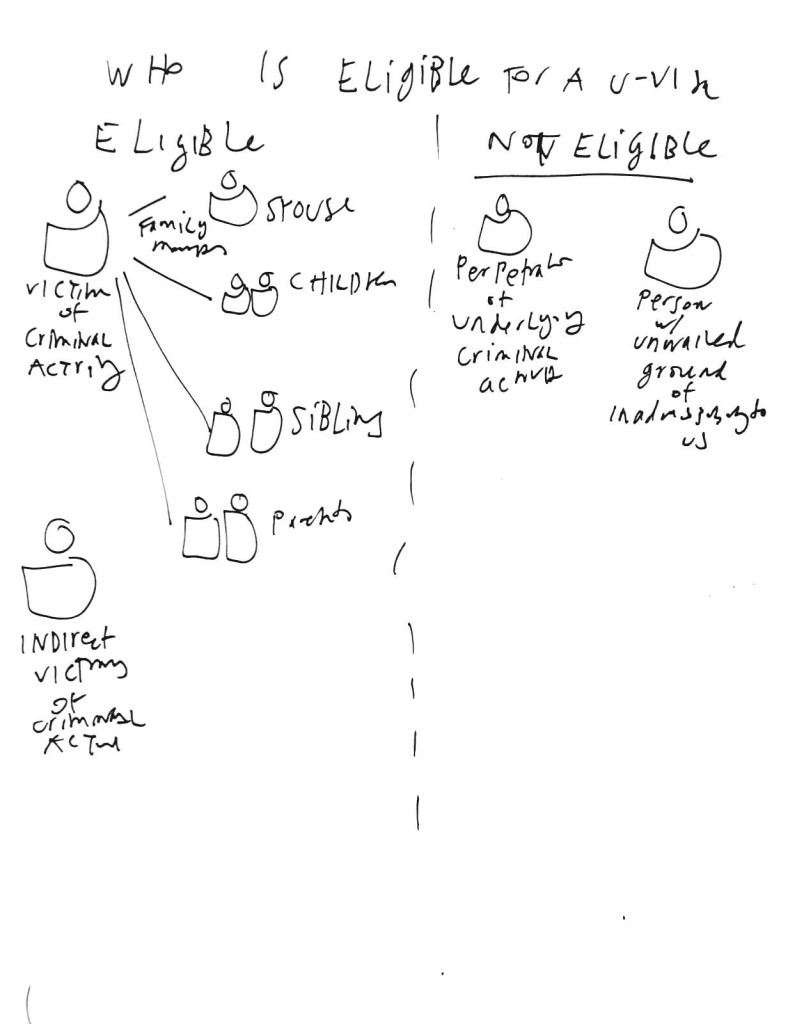 WHO IS ELIGIBLE FOR A U-VISA
ELIGIBLE
NOT ELIGIBLE
VICTIM
of
CRIMINAL
ACTIVITY
Family
SPOUSE
CHILDREN
SIBLING
Parents
INDIRECT
VICTIMS
of
CRIMINAL
Perpetrator
of
underlying
CRIMINAL
activity
Person
w/
unwaived
ground
of
Inadmissibility to
US